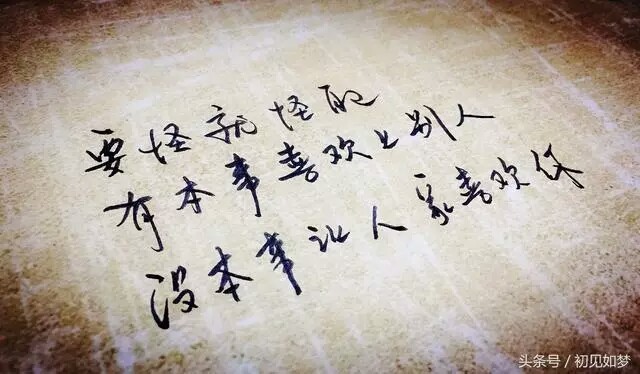 要怪就怪配
有本事喜欢上别人
没本事让人家喜欢你
头条号/初见如梦